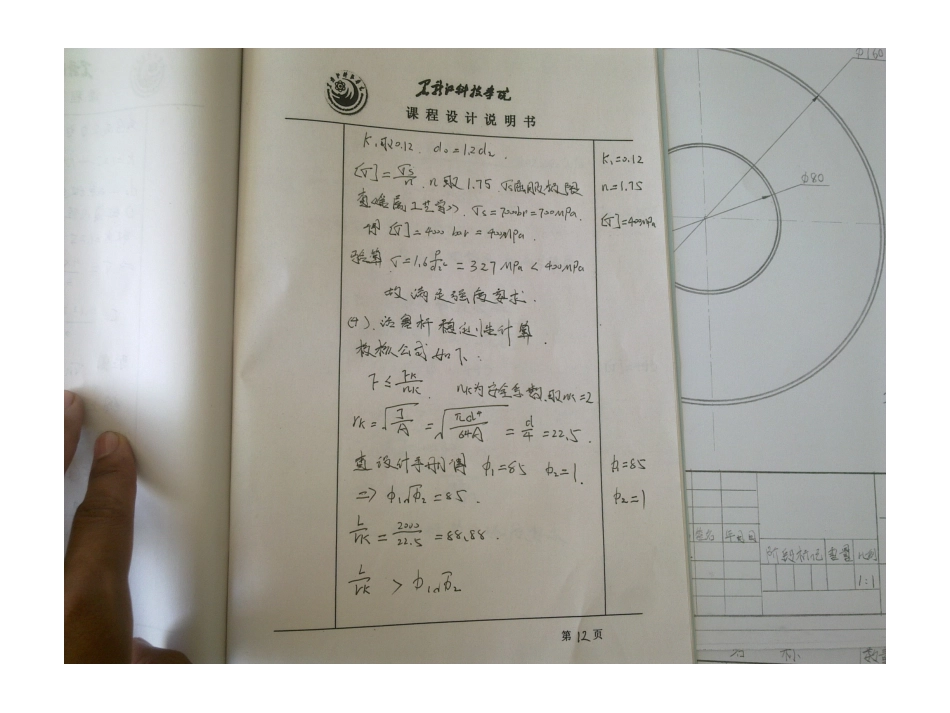 黑龙江科技学院
课程设计说明书
K₁取0.12. d₀=1.2d₂.
[σ]=σs/n. n取1.75. σs屈服极限
查《金属工艺学》. σs=7000bar=700MPa.
得[σ]=4000 bar = 400MPa.
验算 σ=1.6F/d₂² = 327 MPa < 400MPa
故满足强度要求.
(4). 活塞杆稳定性计算.
校核公式如下:
F ≤ Fk/nk. nk为安全系数.取nk=2
rk=√(J/A) = √(πd⁴/64A) = d/4 =22.5.
查设计手册得 φ₁=85 φ₂=1.
=> φ₁√φ₂ = 85.
L/rk = 2000/22.5 = 88.88.
L/rk > φ₁√φ₂
K₁=0.12
n=1.75
[σ]=400MPa
φ₁=85
φ₂=1
第12页
Φ160
Φ80
签名 年月日
阶段标记 重量 比例
1:1